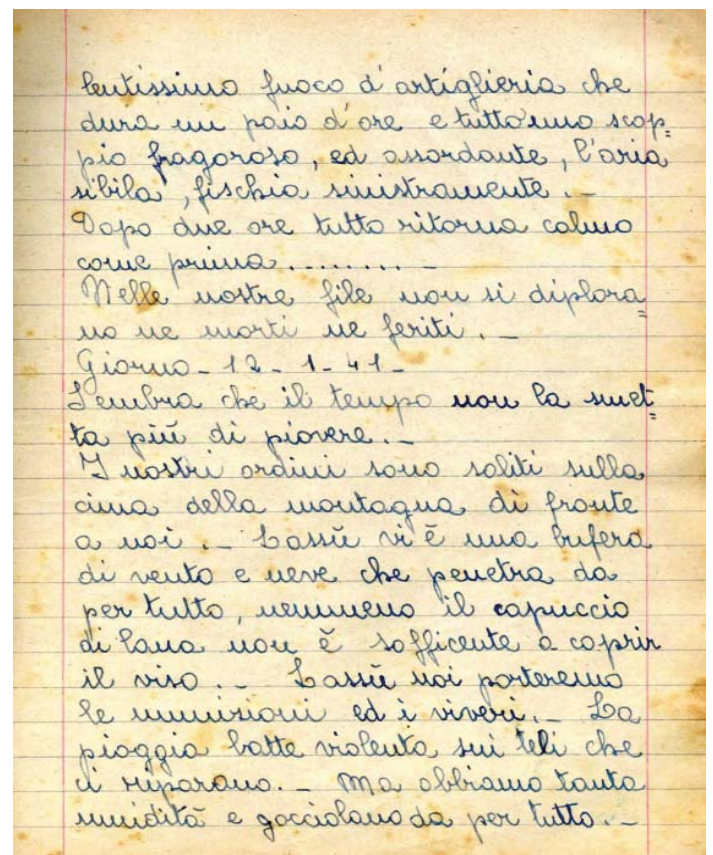 lentissimo fuoco d'artiglieria che
dura un paio d'ore e tutto uno scop=
pio fragoroso, ed assordante, l'aria
sibila, fischia sinistramente. -
Dopo due ore tutto ritorna calmo
come prima......... -
Nelle nostre file non si diplora=
no ne morti ne feriti. -
Giorno - 12 - 1 - 41 -
Sembra che il tempo non la smet=
ta più di piovere. -
I nostri ordini sono soliti sulla
cima della montagna di fronte
a noi. - Lassù vi è una bufera
di vento e neve che penetra da
per tutto, nemmeno il capuccio
di lana non è sofficente a coprir
il viso. - Lassù noi porteremo
le munizioni ed i viveri. - La
pioggia batte violenta sui teli che
ci riparano. - Ma abbiamo tanta
umidità e gocciolano da per tutto. -